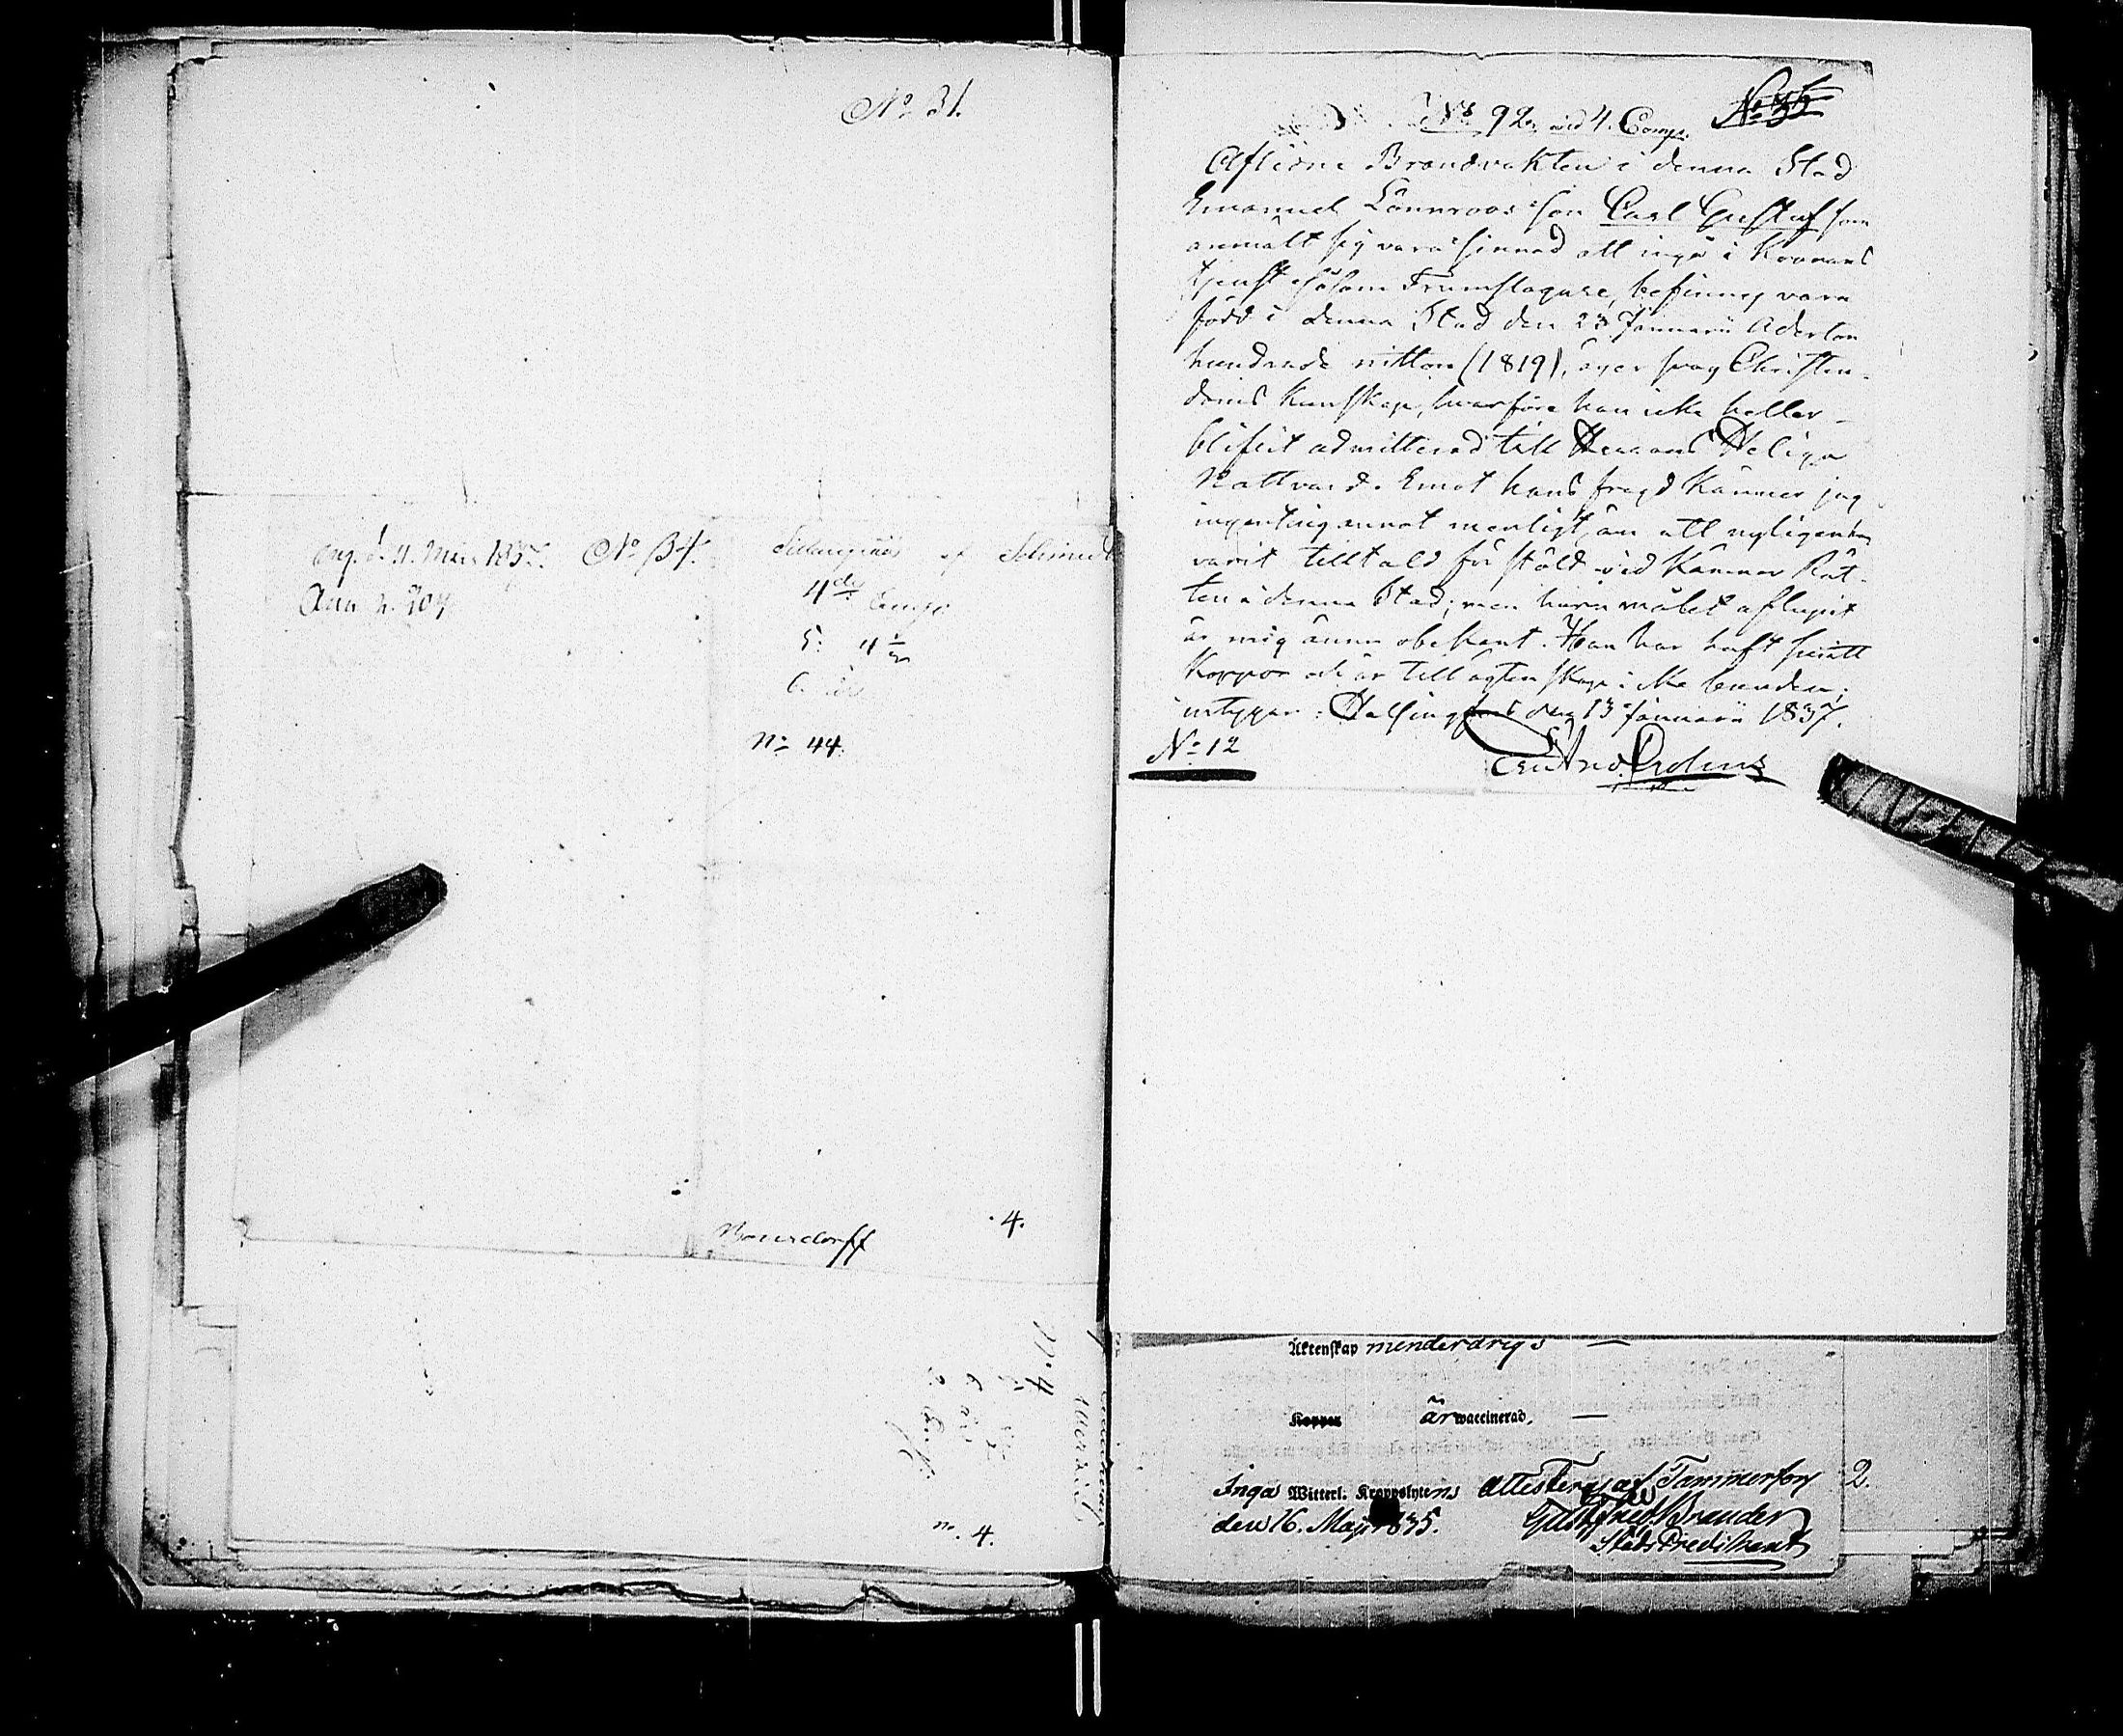 No 31.
ang. d. 11. Mars 1837. No 34.
4de Comp.
5: 4 1/2
No 44.
Bonsdorff 4.
No. 4
no. 4.
No 92. vid 4. Comp.
Aflidne Brandvakten i denna Stad
Emanuel Lönnroos son Carl Gustaf som
anmält sig vara sinnad att ingå i Kronans
tjenst såsom Trumslagare, befinnes vara
född i denna Stad den 23 Januarii Aderton
hundrade nitton (1819), äger svag Christen-
doms kunskap, hvarföre han icke heller
blifvit admitterad till Herrans Heliga
Nattvard. Emot hans fregd känner jag
ingenting annat menligt, än att nyligen
varit tilltald för stöld vid Kämners Rät-
ten i denna Stad; men huru målet aflupit
är mig ännu obekant. Han har haft
Koppor och är till ägtenskap icke bunden;
intygar: Helsingfors den 13 Januarii 1837.
No 12
Äktenskap menderårig
Koppor är waccinerad.
Inga Witterl. Kroppslytens Attesteras af Tammerfors 2.
den 16. Maji 1835. Gust. Fred. Brander
Stads Predikant